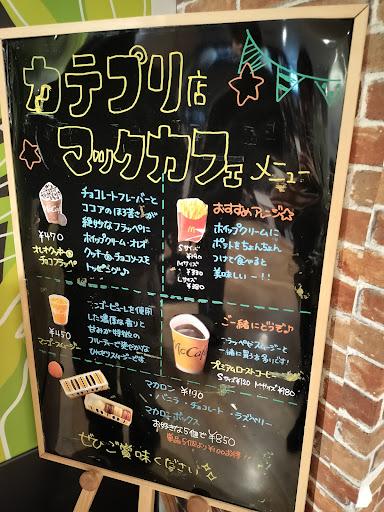 カテプリ店
マックカフェ メニュー
チョコレートフレーバーと
ココアのほろ苦さが
絶妙なフラッペに
ホイップクリーム・オレオ
クッキー・チョコソースを
トッピング♪
¥470
オレオクッキー
チョコフラッペ
おすすめアレンジ☆
ホイップクリームに
ポテトをちょんちょん
つけて食べると
美味しいー!!
Sサイズ
¥190
Mサイズ
¥330
Lサイズ
¥380
マンゴーピューレを使用
した濃厚な香りと
甘みが特徴の
フルーティーで爽やかな
ひんやりスイーツです。
¥450
マンゴースムージー
ご一緒にどうぞ♪
フラッペやスムージーと
一緒に買う方多いです!
プレミアムローストコーヒー
Sサイズ¥120 Mサイズ¥180
McCafé
マカロン ¥190
・バニラ ・チョコレート ・ラズベリー
マカロンボックス
お好きな5個で¥850
単品5個より¥100お得!!
ぜひご賞味ください